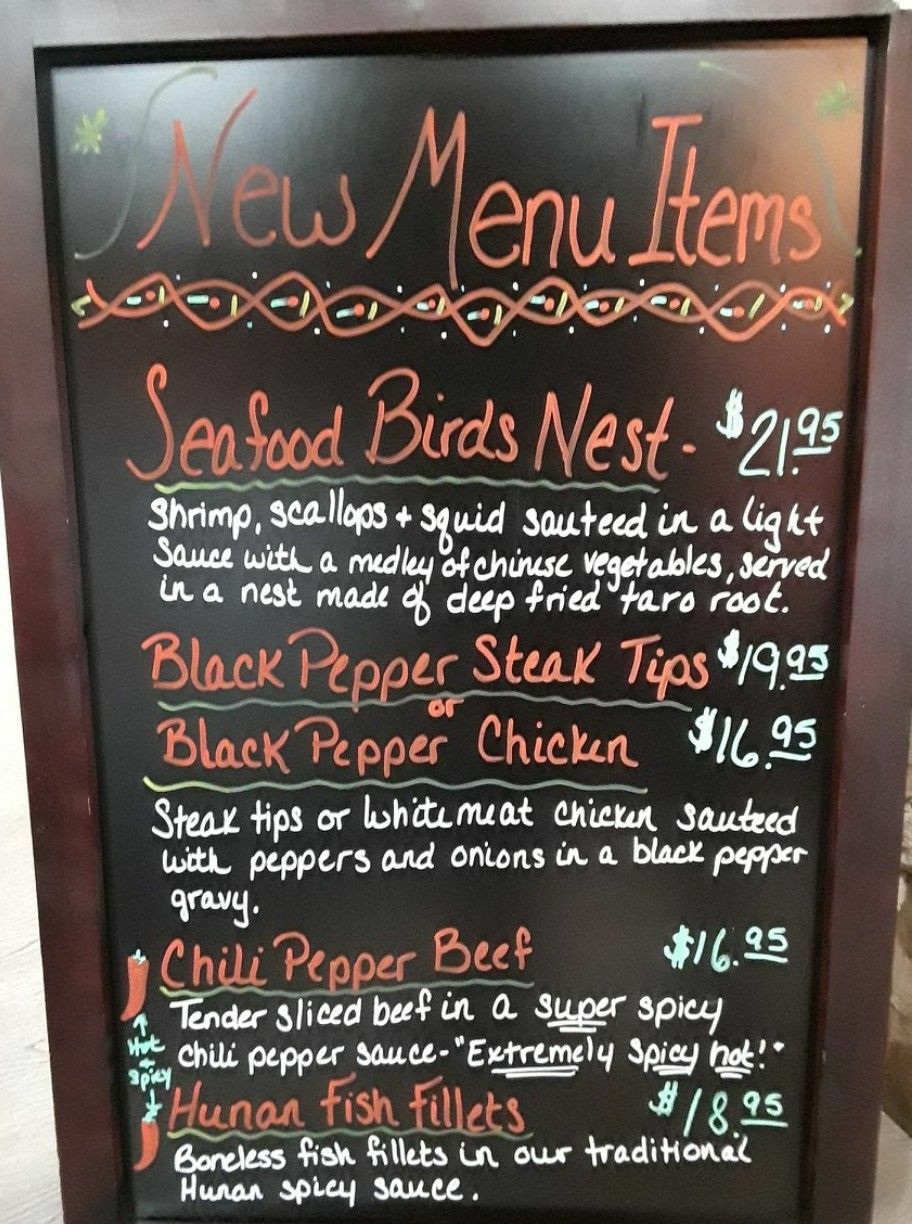 New Menu Items
Seafood Birds Nest - $21.95
Shrimp, scallops + squid sauteed in a light
sauce with a medley of chinese vegetables, served
in a nest made of deep fried taro root.
Black Pepper Steak Tips $19.95
or
Black Pepper Chicken $16.95
Steak tips or white meat chicken sauteed
with peppers and onions in a black pepper
gravy.
Chili Pepper Beef $16.95
Tender sliced beef in a super spicy
chili pepper sauce - "Extremely Spicy hot!"
Hot
+
Spicy
Hunan Fish Fillets $18.95
Boneless fish fillets in our traditional
Hunan spicy sauce.